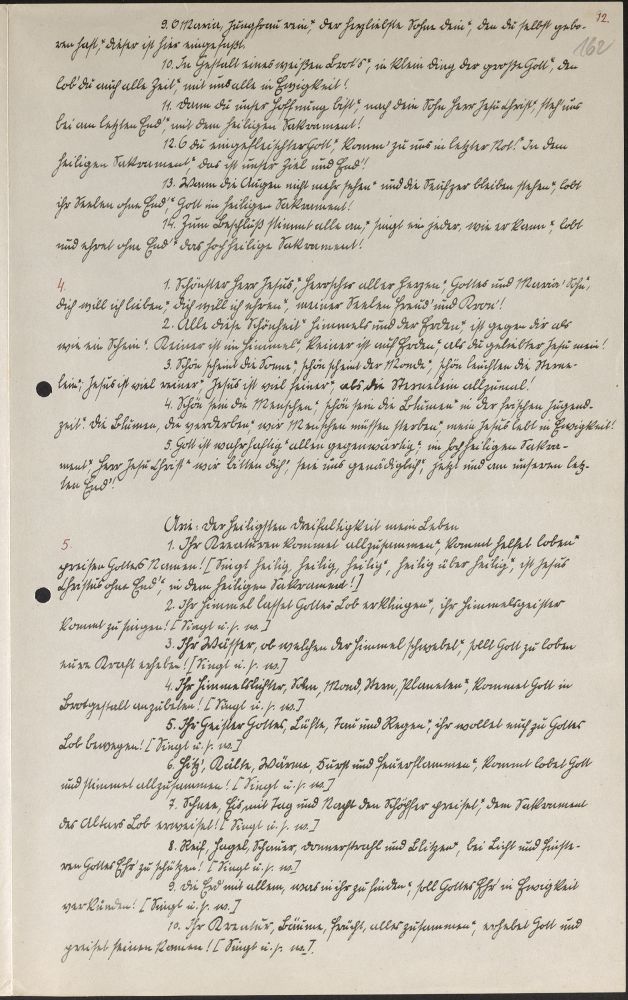 12.
162
9. O Maria, Jungfrau rein," der herzliebste Sohne dein", den du selbst gebo-
ren hast," dieser ist hier eingefaßt.
10. In Gestalt eines weißen Brot's", in klein Ding der große Gott", den
lob' du auch alle Zeit," mit uns alle in Ewigkeit!
11. Dann du unser Hoffnung bist," nach dein Sohn Herr Jesu Christ," steh uns
bei am letzten End'," mit dem heiligen Sakrament!
12. O du eingefleischter Gott," komm' zu uns in letzter Not!" In dem
heiligen Sakrament," das ist unser Ziel und End'!
13. Wann die Augen nicht mehr sehen" und die Seufzer bleiben stehen", lobt
ihr Seelen ohne End'," Gott im heiligen Sakrament!
14. Zum Beschluß stimmt alle an," singt ein jeder, wie er kann", lobt
und ehret ohne End'" das hochheilige Sakrament!
4.
1. Schönster Herr Jesus," Herrscher aller Herzen," Gottes und Maria' Sohn,"
dich will ich lieben," dich will ich ehren", meiner Seelen Freud' und Kron'!
2. Alle diese Schönheit" Himmels und der Erden," ist gegen dir als
wie ein Schein". Keiner ist im Himmel", keiner ist auf Erden," als du geliebter Jesu mein!
3. Schön scheint die Sonne," schön scheint der Monde", schön leuchten die Sterne-
lein; Jesus ist viel reiner" Jesus ist viel feiner", als die Sternelein allzumal!
4. Schön sein die Menschen," schön sein die Blumen" in der frischen Jugend-
zeit." Die Blumen, die verderben," wir Menschen müssen sterben" mein Jesus lebt in Ewigkeit!
5. Gott ist wahrhaftig" allen gegenwärtig," im hochheiligen Sakra-
ment," Herr Jesu Christ" wir bitten dich', seie uns genädiglich", jetzt und am unseren letz-
ten End'!
Arie: Der heiligsten Dreifaltigkeit mein Leben
5.
1. Ihr Kreaturen kommet allzusammen," kommt helfet loben"
preisen Gottes Namen! [Singt heilig, heilig, heilig", heilig über heilig", ist Jesus
Christus ohne End'," in dem heiligen Sakrament!]
2. Ihr Himmel lasset Gottes Lob erklingen", ihr Himmelsgeister
kommt zu singen! [Singt u. s. w.]
3. Ihr Wässer, ob welchen der Himmel schwebet", sollt Gott zu loben
eure Kraft erheben! [Singt u. s. w.]
4. Ihr Himmelslichter, Sonn, Mond, Stern, Planeten", kommet Gott in
Brotgestalt anzubeten! [Singt u. s. w.]
5. Ihr Geister Gottes, Lüfte, Tau und Regen", ihr wollet euch zu Gottes
Lob bewegen! [Singt u. s. w.]
6. Hitz', Kälte, Wärme, Durst und Feuerflammen", kommt lobet Gott
und stimmet allzusammen! [Singt u. s. w.]
7. Schnee, Eis mit Tag und Nacht den Schöpfer preiset," dem Sakrament
des Altars Lob erweiset! [Singt u. s. w.]
8. Reif, Hagel, Schauer, Donnerstrahl und Blitzen", bei Licht und Finste-
ren Gottes Ehr' zu schützen! [Singt u. s. w.]
9. Die Erd' mit allem, was in ihr zu finden", soll Gottes Ehr' in Ewigkeit
verkünden! [Singt u. s. w.]
10. Ihr Kreatur, Bäume, Frücht, alles zusammen", erhebet Gott und
preiset seinen Namen! [Singt u. s. w.].